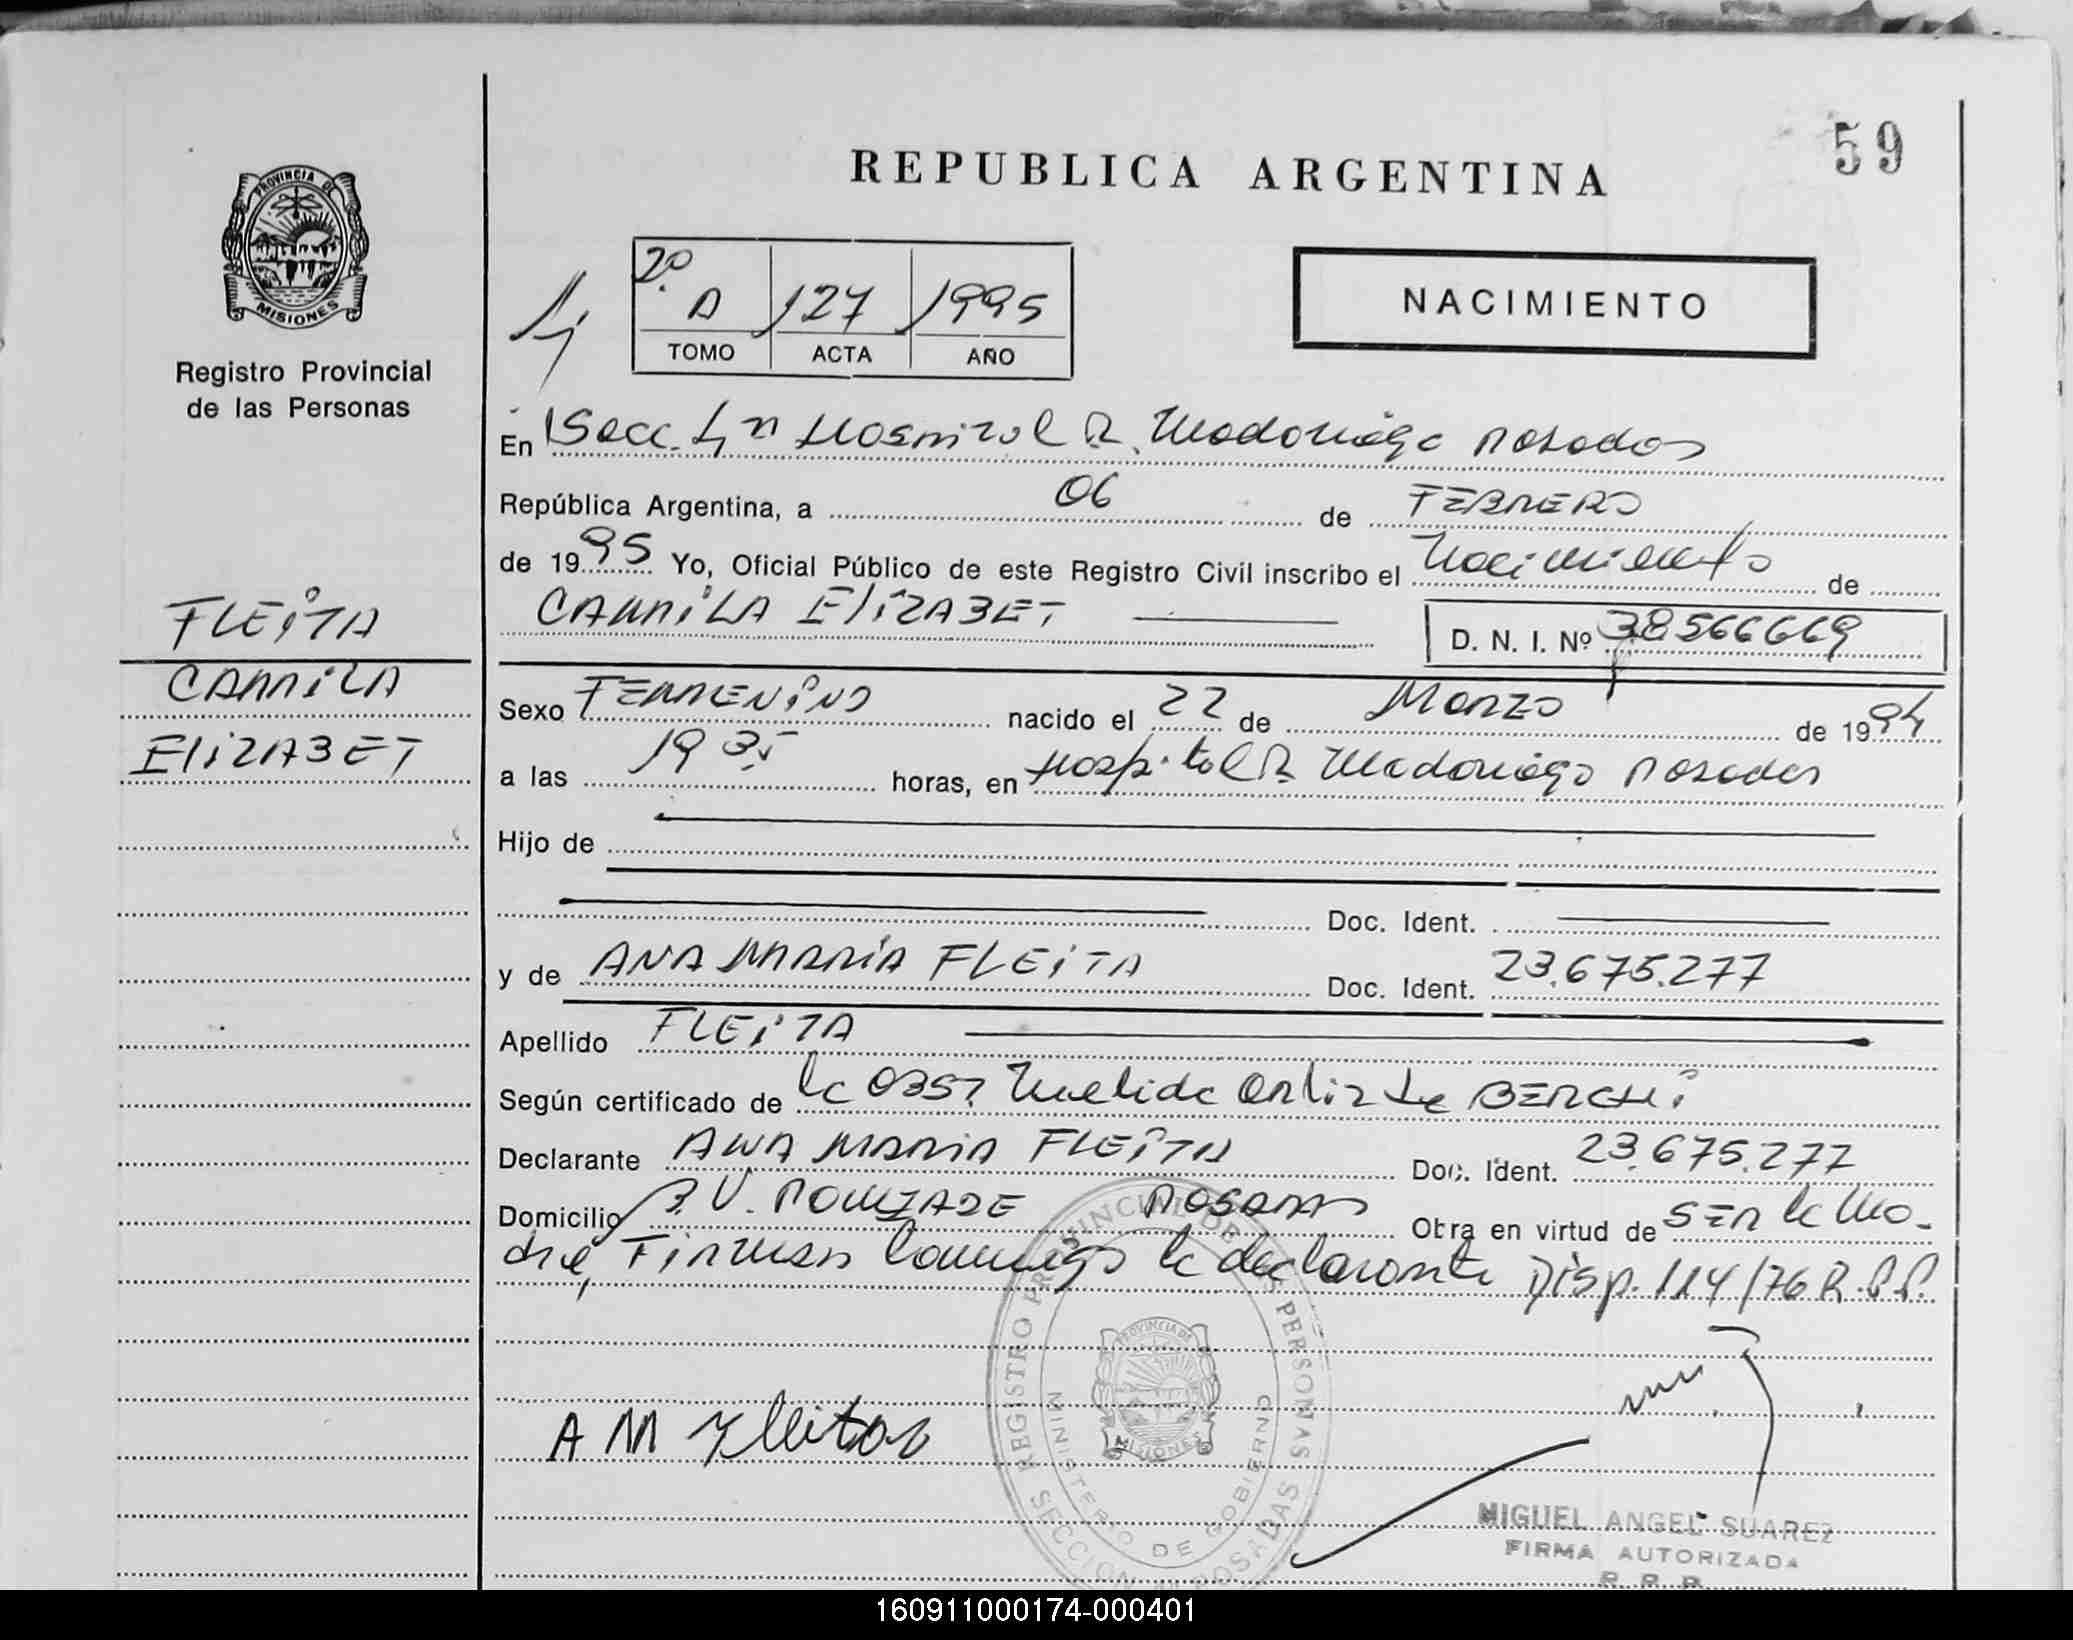 59
REPUBLICA ARGENTINA
PROVINCIA DE
MISIONES
Registro Provincial
de las Personas
2º A 127 1995
TOMO ACTA AÑO
NACIMIENTO
En Secc. Hospital R. Madariaga Posadas
República Argentina, a 06 de FEBRERO
de 1995 Yo, Oficial Público de este Registro Civil inscribo el Nacimiento de
CAMILA ELIZABET D. N. I. Nº 38566669
FLEITA
CAMILA
ELIZABET
Sexo FEMENINO nacido el 22 de Marzo de 1994
a las 19 35 horas, en Hospital R. Madariaga Posadas
Hijo de
Doc. Ident.
y de ANA MARIA FLEITA Doc. Ident. 23.675.277
Apellido FLEITA
Según certificado de la OBST Nelida Ortiz de BERCHI
Declarante ANA MARIA FLEITA Doc. Ident. 23.675.277
Domicilio B. V. POUJADE POSADAS Obra en virtud de SER la Ma-
dre, Firman conmigo la declarante Disp. 114/76 R.P.P.
A M Fleitas
REGISTRO PROVINCIAL DE LAS PERSONAS
PROVINCIA DE
MISIONES
MINISTERIO DE GOBIERNO
SECCION POSADAS
MIGUEL ANGEL SUAREZ
FIRMA AUTORIZADA
R. P. P.
160911000174-000401